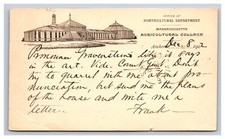 OFFICE OF
HORTICULTURAL DEPARTMENT
MASSACHUSETTS
AGRICULTURAL COLLEGE
Dec 8,
Pronounce Gravenstein's
in the art. Vide. Don't
try to quarrel with me about pro-
nunciation, but send me the plans
of the house and write me a
letter. Frank